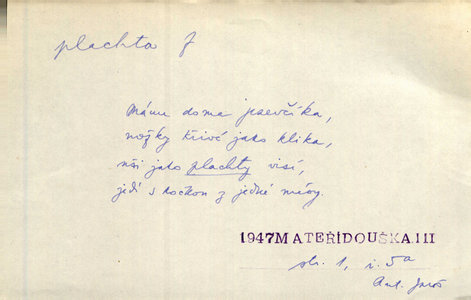 plachta f
Mámo doma jezevčíka,
nožky křivé jako klika,
uši jako plachty visí,
jedí s kočkou z jedné mísy.
1947 MATEŘÍDOUŠKA III
str. 1, č. 5a
Ant. Jaroš